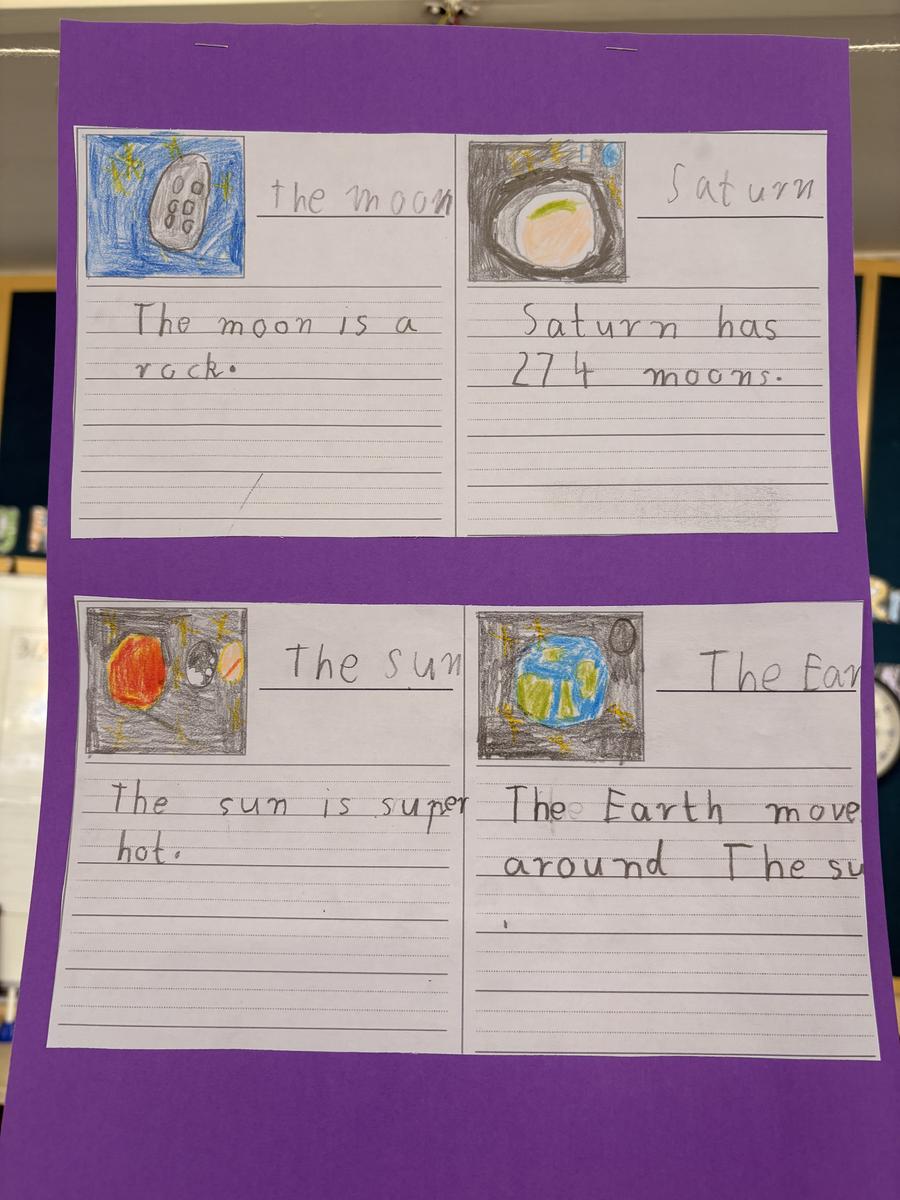 the moon
The moon is a
rock.
Saturn
Saturn has
274 moons.
The sun
The sun is super
hot.
The Ear
The Earth move
around The su
.